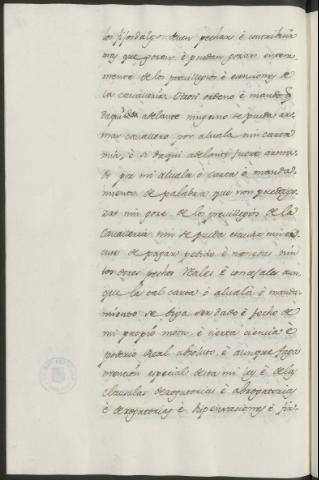 los fijosdalgo deven pechar é contribuir
mas que gocen é puedan gozar entera
mente de los previllegios é exenciones de
la cavalleria. Otrosi ordeno é mando q̃
daqui adelante ninguno se pueda ar-
mar cavallero por alvala nin carta
mia, é si daqui adelante fuere arma-
do por mi alvala ó carta ó manda-
miento de palabra que non pueda go-
zar nin goce de los previllegios de la
cavalleria nin se pueda escusar nin es-
cuse de pagar pedido é monedas nin
los otros pechos Reales é concejales aun
que la tal carta ó alvala ó manda-
miento se diga ser dado é fecho de
mi propio motu é cierta ciencia é
poderio Real absoluto, é aunque faga
mencion especial desta mi ley é de las
clausulas derogatorias é abrogatorias
é derogatorias é dispensaciones é fir-